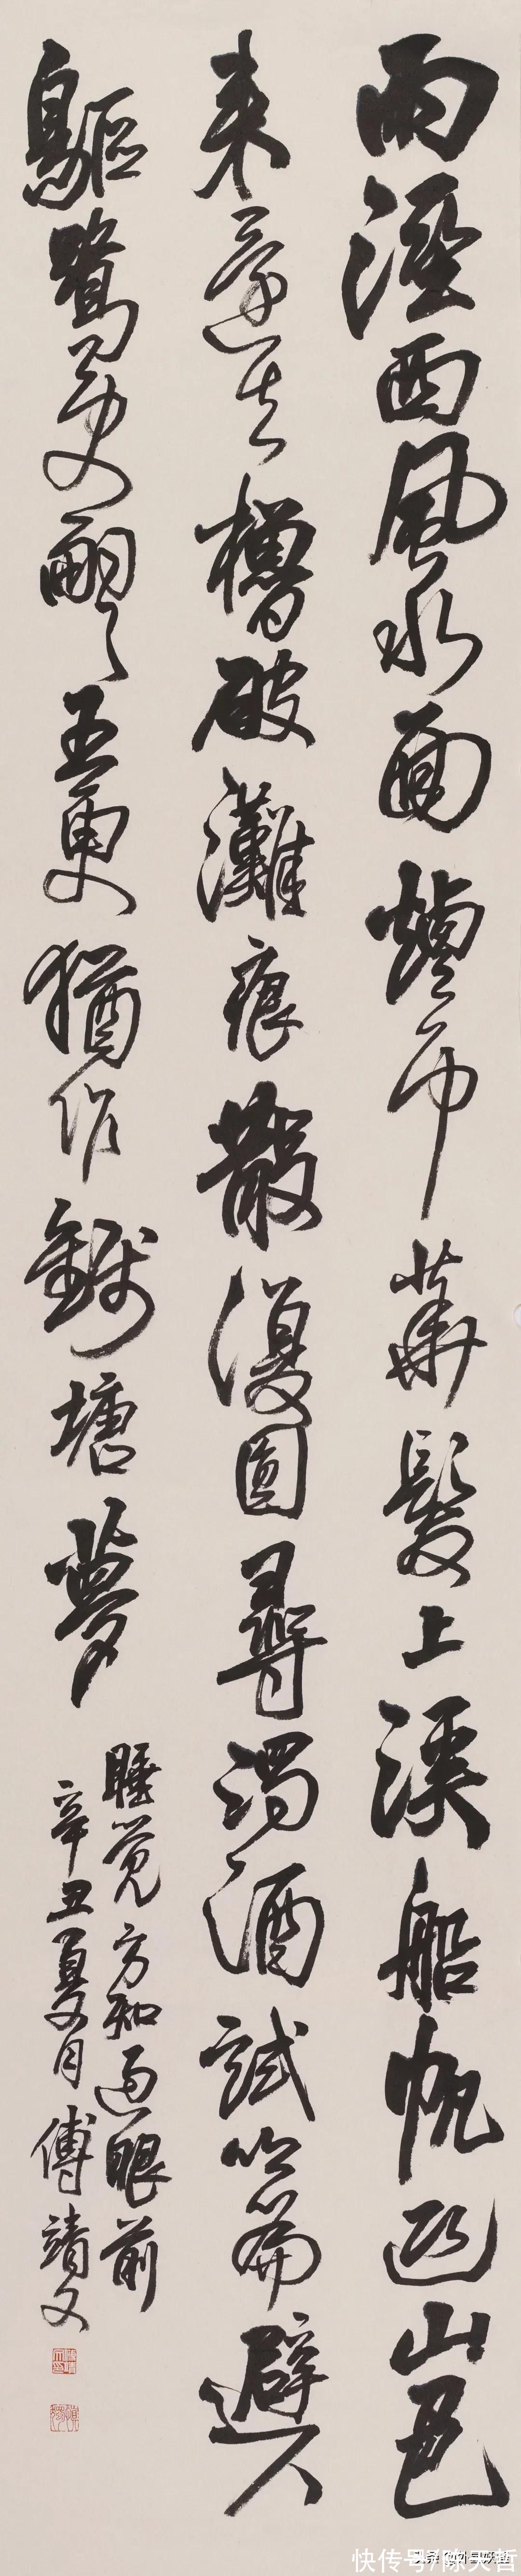 雨溼西風水面煙一巾華髮上溪船帆迎山色
来還去櫓破灘痕散復圓尋濁酒試吟篇避人
鷗鷺更翩々五更猶作錢塘夢
睡觉方知過眼前
辛丑夏月傅靖文
快传号/陈天哲